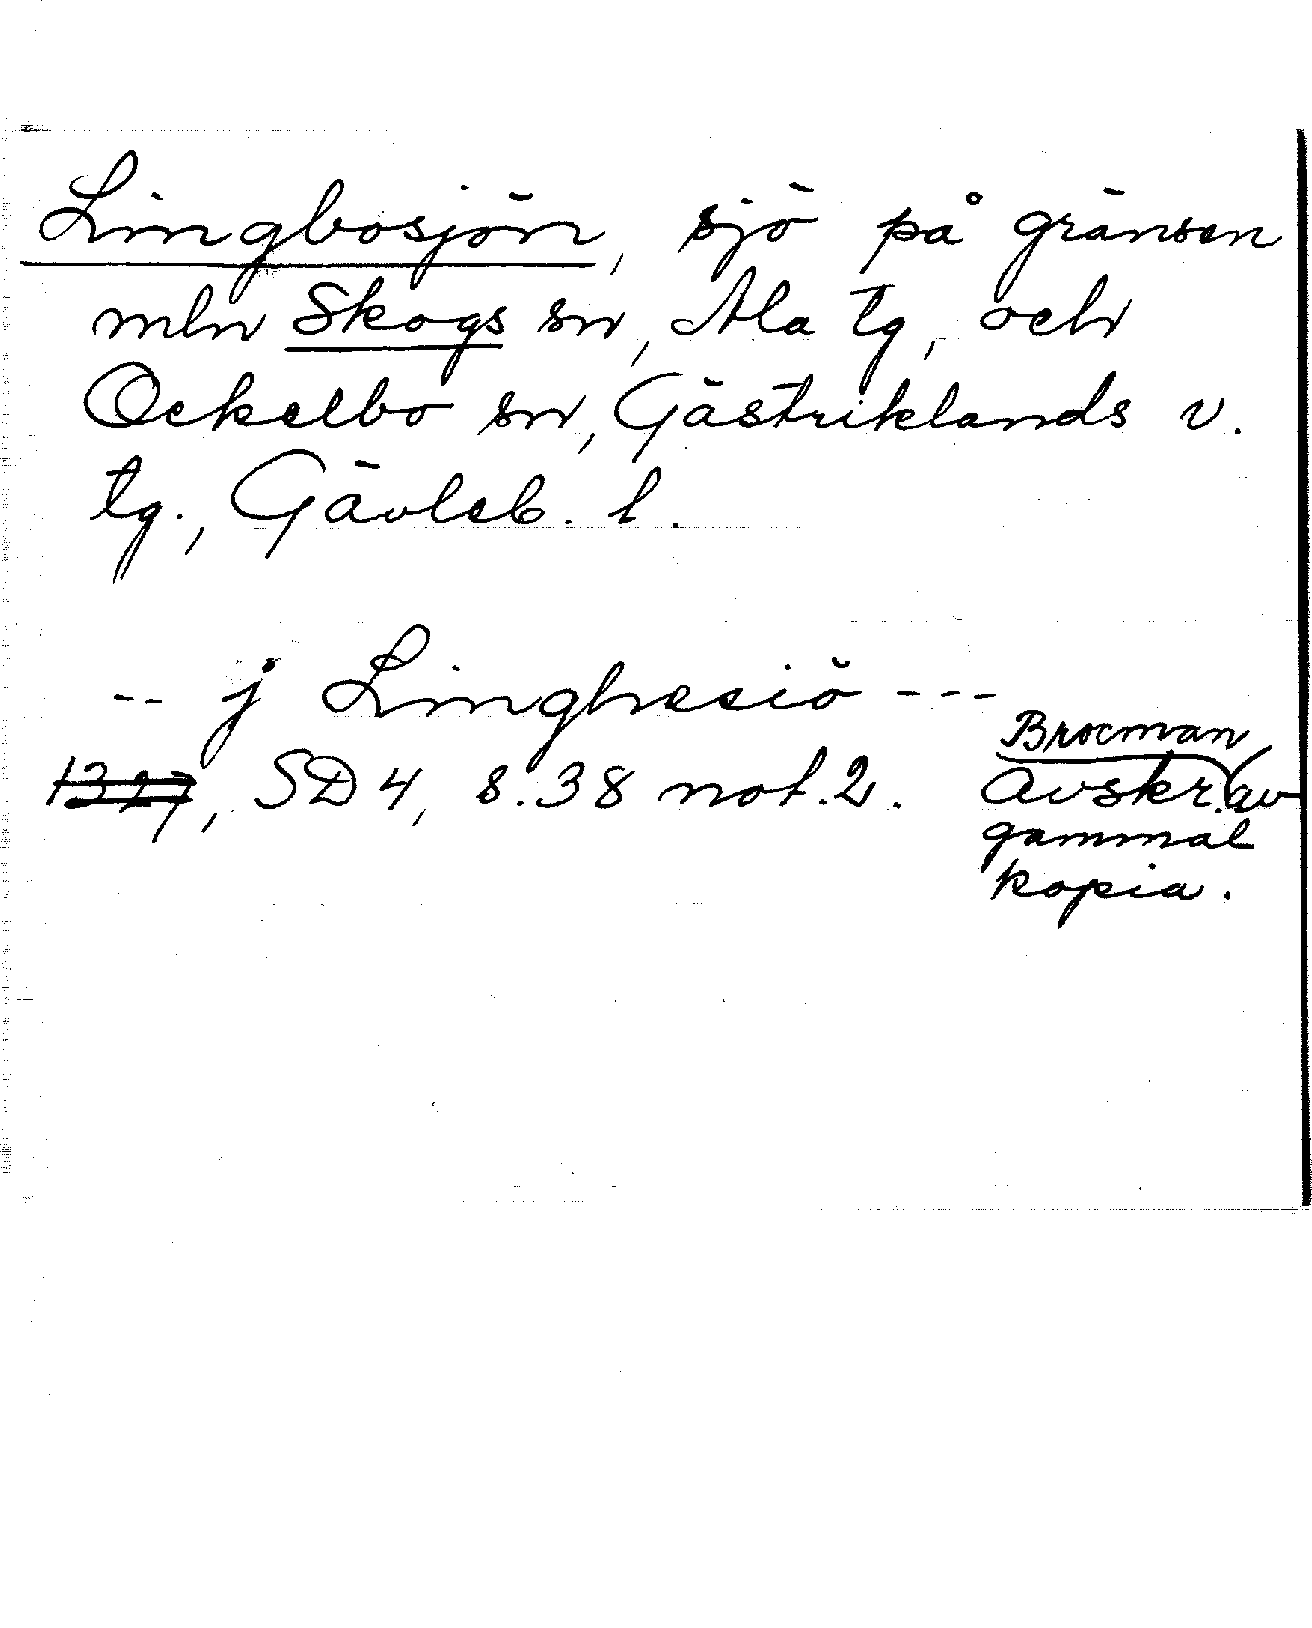 Lingbosjön, sjö på gränsen
mln Skogs sn, Ala tg, och
Ockelbo sn, Gästriklands v.
tg., Gävleb. l.
-- j Linghesiö ---
1327, SD 4, s. 38 not. 2. Avskr. Brocman av
gammal
kopia.